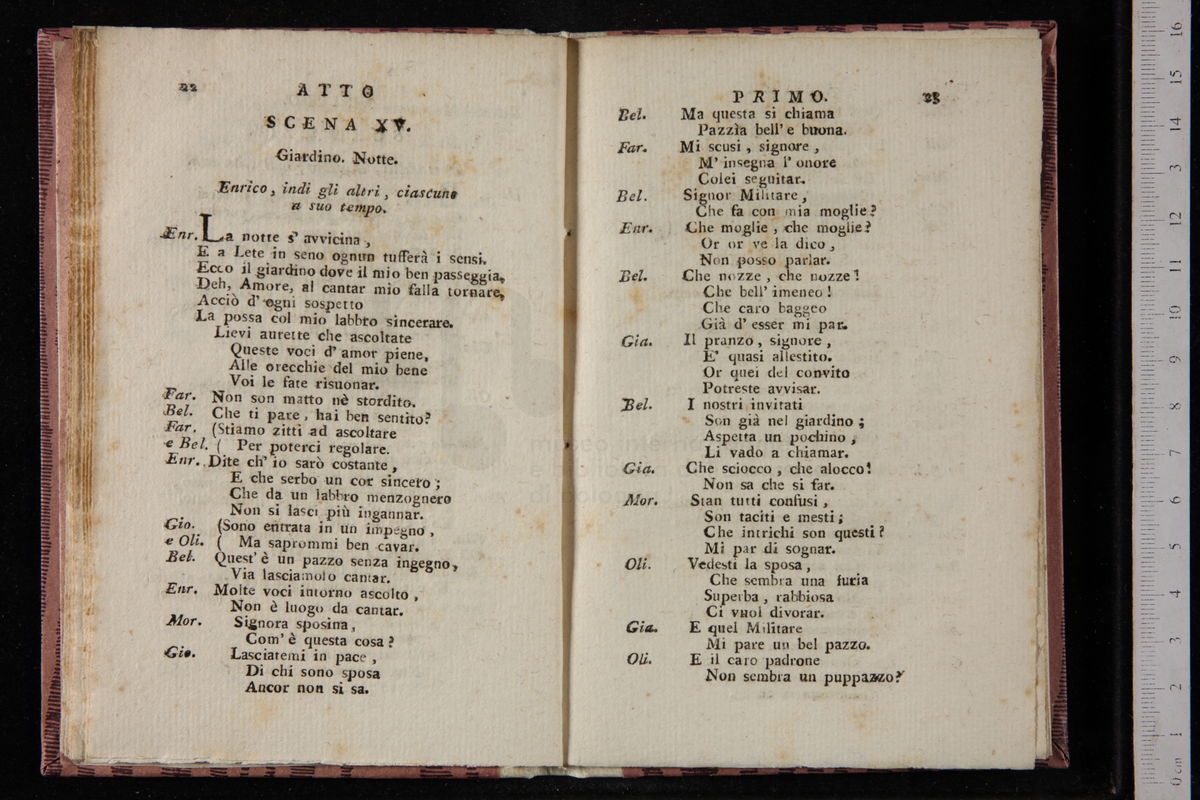 22
ATTO
SCENA XV.
Giardino. Notte.
Enrico, indi gli altri, ciascuno
a suo tempo.
Enr. La notte s' avvicina,
E a Lete in seno ognun tufferà i sensi.
Ecco il giardino dove il mio ben passeggia,
Deh, Amore, al cantar mio falla tornare,
Acciò d' ogni sospetto
La possa col mio labbro sincerare.
Lievi aurette che ascoltate
Queste voci d' amor piene,
Alle orecchie del mio bene
Voi le fate risuonar.
Far. Non son matto nè stordito.
Bel. Che ti pare, hai ben sentito?
Far. (Stiamo zitti ad ascoltare
e Bel. ( Per poterci regolare.
Enr. Dite ch' io sarò costante,
E che serbo un cor sincero;
Che da un labbro menzognero
Non si lasci più ingannar.
Gio. (Sono entrata in un impegno,
e Oli. ( Ma saprommi ben cavar.
Bel. Quest' è un pazzo senza ingegno,
Via lasciamolo cantar.
Enr. Molte voci intorno ascolto,
Non è luogo da cantar.
Mor. Signora sposina,
Com' è questa cosa?
Gio. Lasciatemi in pace,
Di chi sono sposa
Ancor non si sa.
PRIMO.
23
Bel. Ma questa si chiama
Pazzìa bell' e buona.
Far. Mi scusi, signore,
M' insegna l' onore
Colei seguitar.
Bel. Signor Militare,
Che fa con mia moglie?
Enr. Che moglie, che moglie?
Or or ve la dico,
Non posso parlar.
Bel. Che nozze, che nozze!
Che bell' imeneo!
Che caro baggeo
Già d' esser mi par.
Gia. Il pranzo, signore,
E' quasi allestito.
Or quei del convito
Potreste avvisar.
Bel. I nostri invitati
Son già nel giardino;
Aspetta un pochino,
Li vado a chiamar.
Gia. Che sciocco, che alocco!
Non sa che si far.
Mor. Stan tutti confusi,
Son taciti e mesti;
Che intrichi son questi?
Mi par di sognar.
Oli. Vedesti la sposa,
Che sembra una furia
Superba, rabbiosa
Ci vuol divorar.
Gia. E quel Militare
Mi pare un bel pazzo.
Oli. E il caro padrone
Non sembra un puppazzo?